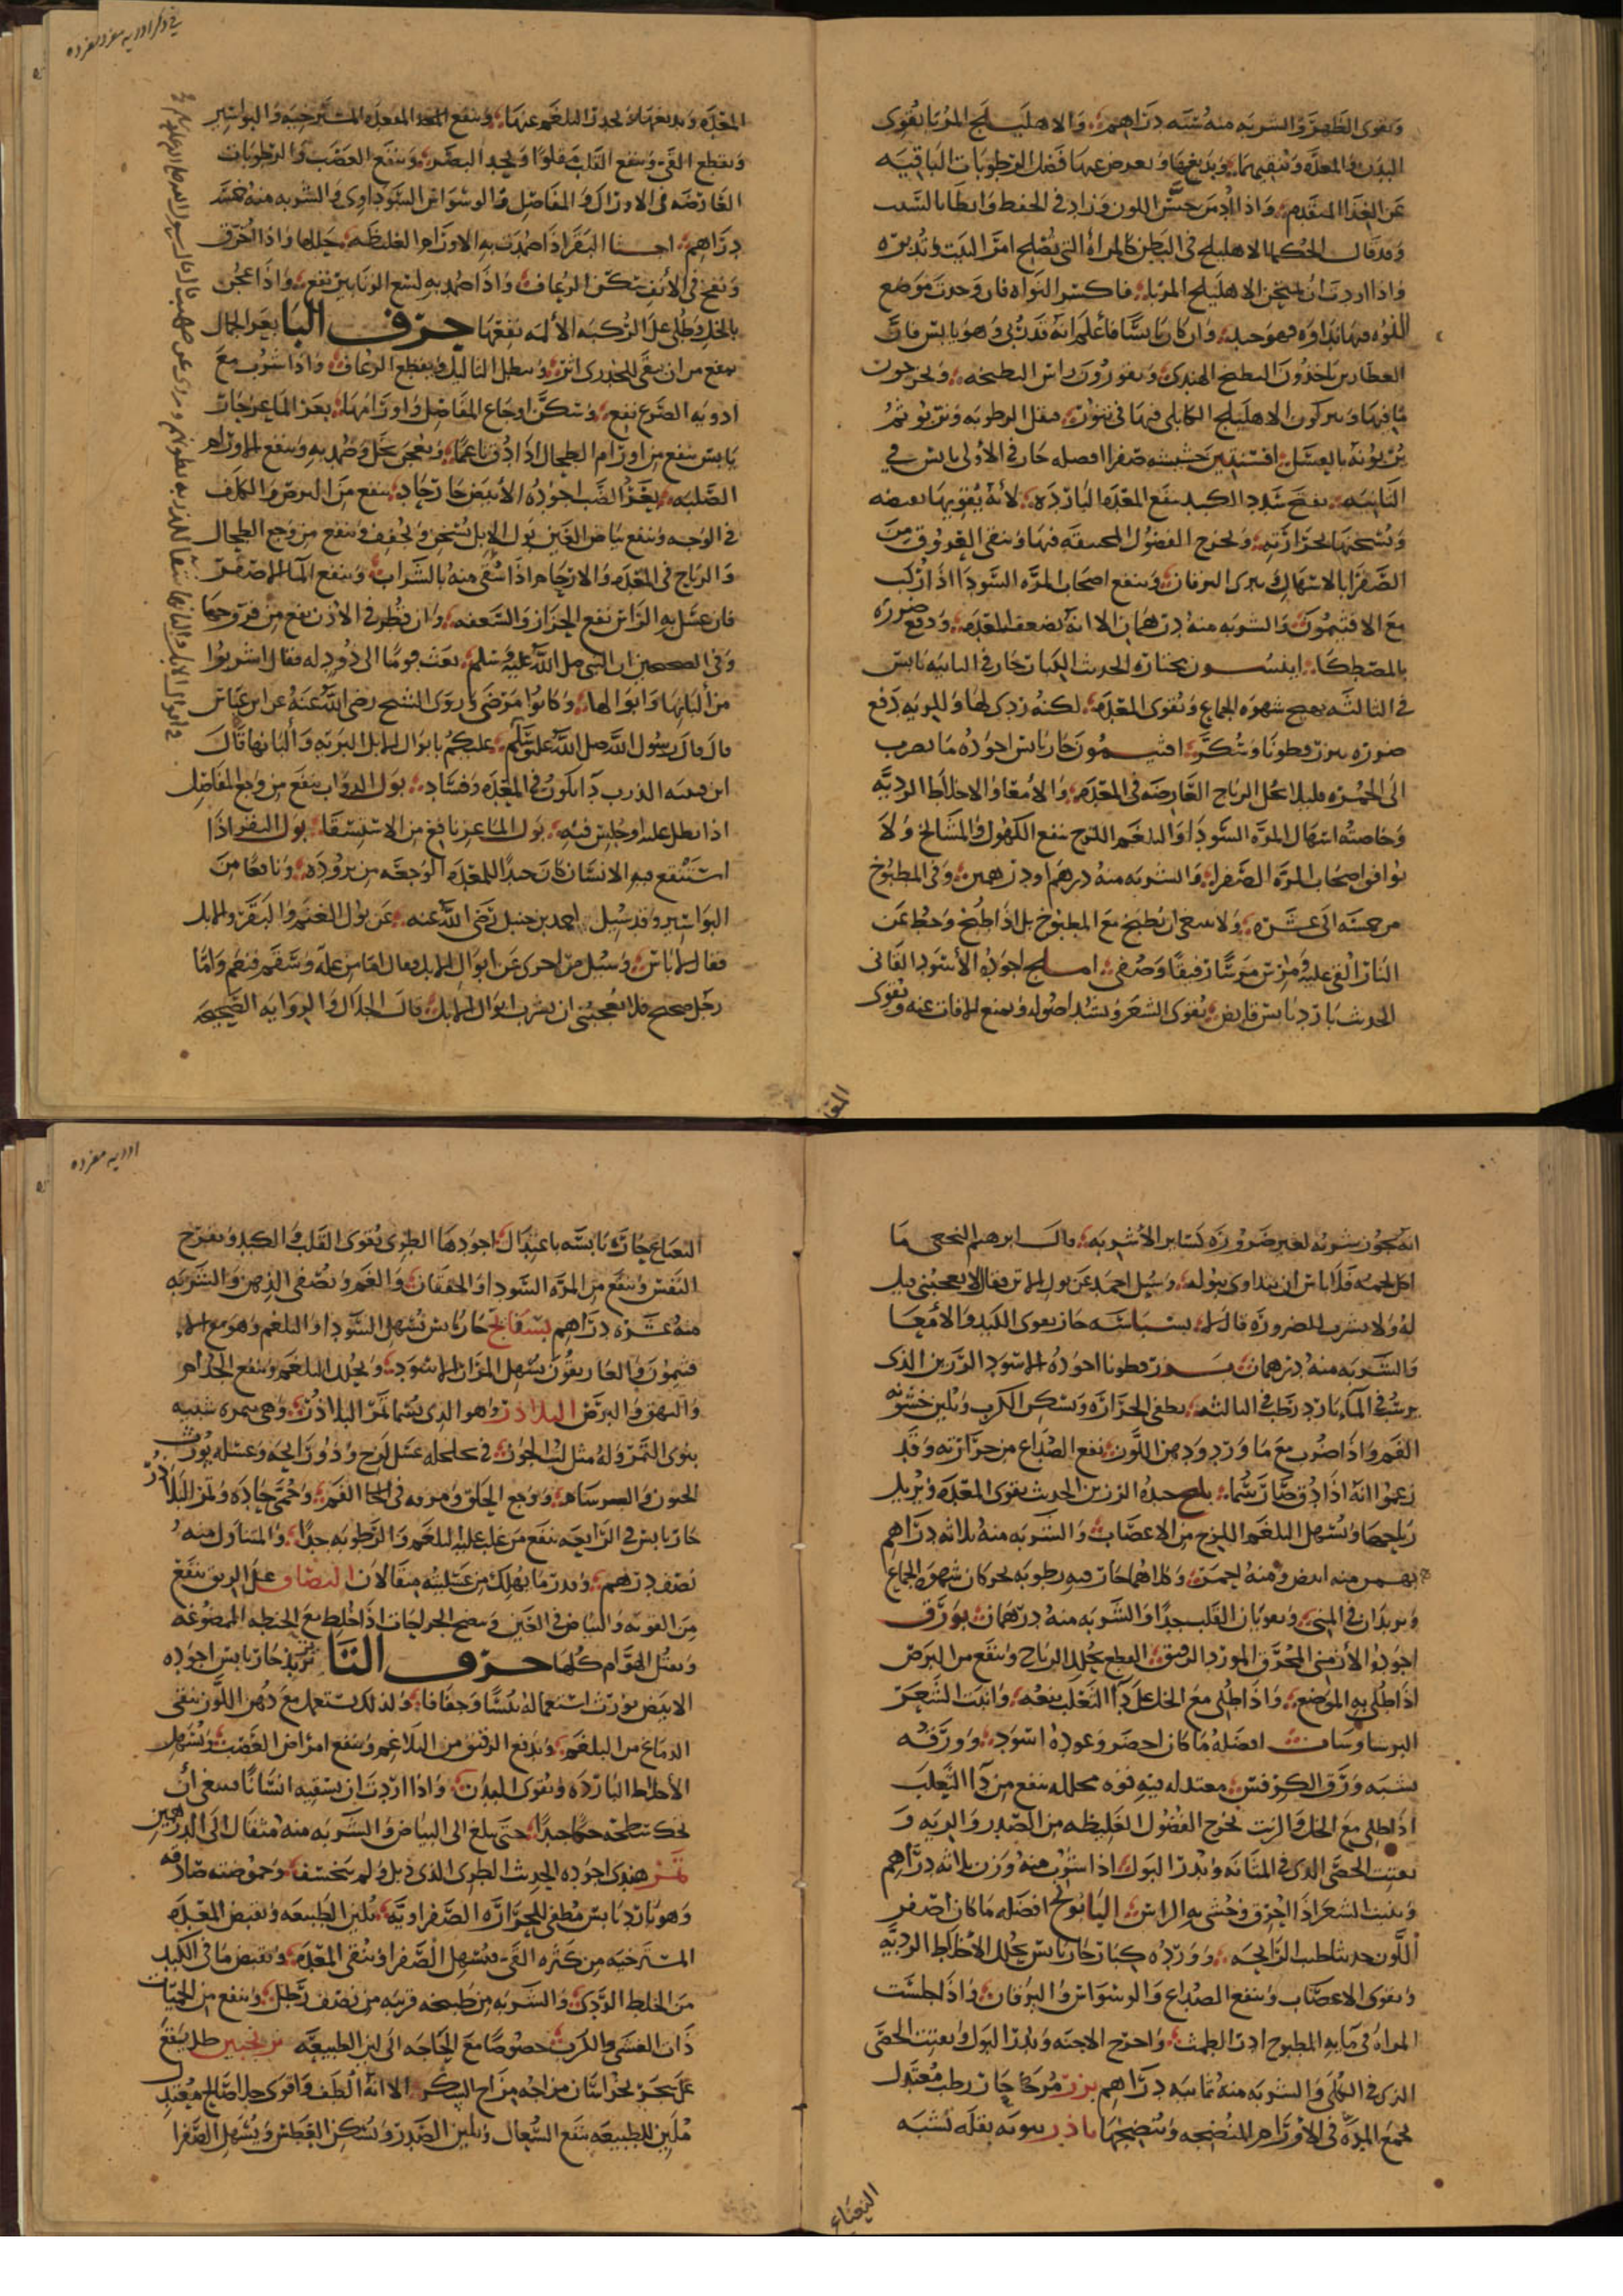 وتقوى الظهر والشربه منه ستة دراهم والاهليلج المربا يقوى
البدن والمعدة وينقيهما ويدبغها ويعرض عنها فضل الرطوبات الباقيه
عن الغدا المتقدم واذا ادمن حسن اللون وزاد فى الحفظ وابطا بالشيب
وقد قال الحكما الاهليلج فى البطن كالمراة التى تصلح امر البيت وتدبيره
واذا اردت ان تمتحن الاهليلج المربا فاكسر النواه فان وجدت موضع
النواه فيها نداوه فهو جيد وان كان يابسا فاعلم انه قد ربى وهو يابس فان
العطارين ياخذون البطيخ الهندى ويقورون راس البطيخه ويخرجون
ما فيها ويتركون الاهليلج الكابلى فيها فى الرطوبه ثم
يربونه بالعسل افسنتين حشيشه صفرا افضله حار فى الاولى يابس فى
الثانيه يفتح سدد الكبد ينفع المعده البارده لانه يقويها بقبضه
ويسخنها بحرارته ويخرج الفضول المحتبسة فيها وينقى العروق من
الصفرا بالاسهال يبرى اليرقان وينفع اصحاب المره السودا اذا ركب
مع الافتيمون والشربه منه درهمان الا انه يضعف المعده ودفع ضرره
بالمصطكا انيسون يختار الحديث الكبار حار فى الثانيه يابس
فى الثالثه يهيج شهوه الجماع ويقوى المعده لكنه ردى لها وللريه دفع
ضرره بزرقطونا وسكر افتيمون حار يابس اجوده ما يضرب
الى الحمره قليلا يحلل الرياح العارضه فى المعده والامعا والاخلاط الرديه
وخاصته اسهال المره السودا والبلغم اللزج ينفع الكهول والمشايخ ولا
يوافق اصحاب المره الصفرا والشربه منه درهم او درهمين وفى المطبوخ
من خمسه الى عشره ولا ينبغى ان يطبخ مع المطبوخ بل اذا طبخ وحط عن
النار القى عليه ومرس مرسا رفيقا وصفى املج اجوده الاسود القانى
الحديث بارد يابس قابض يقوى الشعر ويشد اصوله ويمنع الافات عنه ويقوى
فى ذكر ادويه مفرده
المعده ويدبغها لاحدر البلغم عنها وينفع المعده المسترخيه والبواسير
ويقطع القى وينفع القلب مقلوا ويحد البصر وينفع العصب والرطوبات
العارضه فى الاوراك والمفاصل والوسواس السوداوى والشربه منه خمسه
دراهم اخثا البقر اذا ضمدت به الاورام الغليظه حللها واذا احرق
ونفخ فى الانف سكن الرعاف واذا ضمد به لسع الزنابير نفع واذا عجن
بالخل وطلى على الركبه الالمه نفعها حرف البا بعر الجمال
يمنع من ان يبقى للجدرى اثر ويبطل الثاليل ويقطع الرعاف واذا شرب مع
ادويه الصرع نفع وسكن اوجاع المفاصل واورامها بعر الماعز حار
يابس ينفع من اورام الطحال اذا دق ناعما وعجن بخل وضمد به وينفع الاورام
الصلبه بعر الضب اجوده الابيض حار حاد ينفع من البرص والكلف
فى الوجه وينفع بياض العين بول الابل يسخن ويجفف وينفع من وجع الطحال
والرياح فى المعده والارحام اذا سقى منه بالشراب وينفع الما الاصفر
فان غسل به الراس نفع الحزاز والسعفه وان قطر فى الاذن نفع من قروحها
وفى الصحيحين ان النبى صلى الله عليه وسلم بعث قوما الى ذود له فقال اشربوا
من البانها وابوالها وكانوا مرضى وروى الشيخ رضى الله عنه عن ابن عباس
قال قال رسول الله صلى الله عليه وسلم عليكم بابوال الابل البريه والبانها قال
ابن قتيبه الذرب دا يكون فى المعده وفساد بول الدواب ينفع من وجع المفاصل
اذا نطل عليه او جلس فيه بول الماعز نافع من الاستسقا بول البقر اذا
استنقع فيه الانسان كان جيدا للمعده الوجعه من بروده ونافعا من
البواسير وقد سيل احمد بن حنبل رضى الله عنه عن بول الغنم والبقر والابل
فقال لا باس وسيل مره اخرى عن ابوال الابل فقال اما من عله وسقم فنعم واما
رجل صحيح فلا يعجبنى ان يشرب ابوال الابل قال الخلال والروايه الصحيحه
انه يجوز شربه لغير ضروره كساير الاشربه قال ابرهيم النخعى ما
اكل لحمه فلا باس ان يتداوى ببوله وسيل احمد عن بول الاتن فقال لا يعجبنى قيل
له ولا يشرب للضروره قال لا بسباسه حار يقوى الكبد والامعا
والشربه منه درهمان بزرقطونا اجوده الاسود الرزين الذى
يرسب فى الما بارد رطب فى الثالثه يطفى الحراره ويسكن الكرب ويلين خشونه
الفم واذا ضرب مع ما ورد ودهن اللوز نفع الصداع من حرارته وقد
زعموا انه اذا دق صار سما بليلج جيده الرزين الحديث يقوى المعده ويزيل
رياحها ويسهل البلغم اللزج من الاعصاب والشربه منه ثلاثه دراهم
بهمن منه ابيض ومنه احمر وكلاهما حار فيه رطوبه يحركان شهوه الجماع
ويزيدان فى المنى ويقويان القلب جدا والشربه منه درهمان بورق
اجوده الارمنى المحرق المورد القطع يحلل الرياح وينفع من البرص
اذا طلى به الموضع واذا طلى مع الخل على دا الثعلب نفعه وانبت الشعر
البرشاوشان افضله ما كان اخضر وعوده اسود وورقه
يشبه ورق الكرفس معتدل فيه قوه محلله ينفع من دا الثعلب
اذا طلى مع الخل والزيت يخرج الفضول الغليظه من الصدر والريه و
يفتت الحصى الذى فى المثانه ويدر البول اذا شرب منه وزن ثلاثه دراهم
وينبت الشعر اذا احرق وحشى به الراس البابونج افضله ما كان اصفر
اللون حديثا طيب الرايحه وورده كبار حار يابس يحلل الاخلاط الرديه
ويقوى الاعصاب وينفع الصداع والوسواس واليرقان واذا جلست
المراه فى مايه المطبوخ ادر الطمث واخرج الاجنه ويدر البول ويفتت الحصى
الذى فى الكلى والشربه منه ثمانيه دراهم بزر مر حار رطب معتدل
يجمع المده فى الاورام المنضجه وينضجها باذرنبويه بقله تشبه
النعناع
ادويه مفرده
النعناع حاره يابسه باعتدال اجودها الطرى يقوى القلب والكبد ويفرح
النفس وينفع من المره السودا والخفقان والغم ويصفى الذهن والشربه
منه عشره دراهم بسفايج حار يابس يسهل السودا والبلغم وهو مع الا
فتيمون والغاريقون يسهل المرار الاسود ويحلل البلغم وينفع الجذام
والبهق والبرص البلادر وهو الذى يسما ثمر البلادر وهى ثمره شبيه
بنوى التمر وله مثل لب الجوز فى عسل لزج وذو رايحه وعسله يورث
الجنون والسرسام ووجع الحلق وحمى حاده وثمر البلادر
حار يابس فى الرابعه ينفع من غلب عليه البلغم والرطوبه جدا والمتناول منه
نصف درهم وقدر ما يهلك من عسليته مثقالان البصاق على الريق ينفع
من القوبه والبياض فى العين وينضج الجراحات اذا خلط مع الحنطه الممضوغه
ويقتل الهوام كلها حرف التا تربذ حار يابس اجوده
الابيض يورث استعماله يبسا وجفافا ولذلك يستعمل مع دهن اللوز ينقى
الدماغ من البلغم ويدفع من البلاغم وينفع امراض العصب ويسهل
الاخلاط البارده ويقوى البدن واذا اردت ان تسقيه انسانا فينبغى ان
تحك سطحه حكا جيدا حتى يبلغ الى البياض والشربه منه مثقال الى الدرهمين
تمر هندى اجوده الحديث الطرى الذى ذبل ولم يتخشف وحموضته صادقه
وهو بارد يابس مطفى للحراره الصفراويه يلين الطبيعه ويقبض المعده
المسترخيه من كثره القى ويسهل الصفرا وينقى المعده وينقص ما فى الكبد
من الخلط الردى والشربه من طبيخه قريبه من نصف رطل وينفع من الحميات
ذات الغشى والكرب خصوصا مع الحاجه الى لين الطبيعه ترنجبين طل يقع
على شجر بخراسان مزاجه مزاج السكر الا انه الطف واقوى جلا صالح معتدل
ملين للطبيعه ينفع السعال ويلين الصدر ويسكن العطش ويسهل الصفرا